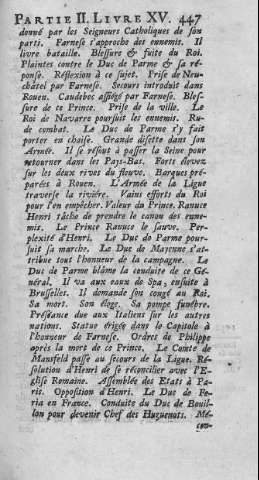 PARTIE II. LIVRE XV. 447
donné par les Seigneurs Catholiques de son
parti. Farnese s'approche des ennemis. Il
livre bataille. Blessure & fuite du Roi.
Plaintes contre le Duc de Parme & sa ré-
ponse. Réflexion à ce sujet. Prise de Neu-
châtel par Farnese. Secours introduit dans
Rouen. Caudebec assiégé par Farnese. Bles-
sure de ce Prince. Prise de la ville. Le
Roi de Navarre poursuit les ennemis. Ru-
de combat. Le Duc de Parme s'y fait
porter en chaise. Grande disette dans son
Armée. Il se résout à passer la Seine pour
retourner dans les Pays-Bas. Forts élevez
sur les deux rives du fleuve. Barques pré-
parées à Rouen. L'Armée de la Ligue
traverse la riviére. Vains efforts du Roi
pour l'en empêcher. Valeur du Prince Ranuce
Henri tâche de prendre le canon des enne-
mis. Le Prince Ranuce le sauve. Per-
plexité d'Henri. Le Duc de Parme pour-
suit sa marche. Le Duc de Mayenne s'at-
tribue tout l'honneur de la campagne. Le
Duc de Parme blâme la conduite de ce Gé-
néral. Il va aux eaux de Spa, ensuite à
Bruxelles. Il demande son congé au Roi.
Sa mort. Son éloge. Sa pompe funébre.
Préséance due aux Italiens sur les autres
nations. Statue érigée dans le Capitole à
l'honneur de Farnese. Ordres de Philippe
après la mort de ce Prince. Le Comte de
Mansfeld passe au secours de la Ligue. Ré-
solution d'Henri de se réconcilier avec l'E-
glise Romaine. Assemblée des Etats à Pa-
ris. Opposition d'Henri. Le Duc de Fe-
ria en France. Conduite du Duc de Bouil-
lon pour devenir Chef des Huguenots. Mé-
con-